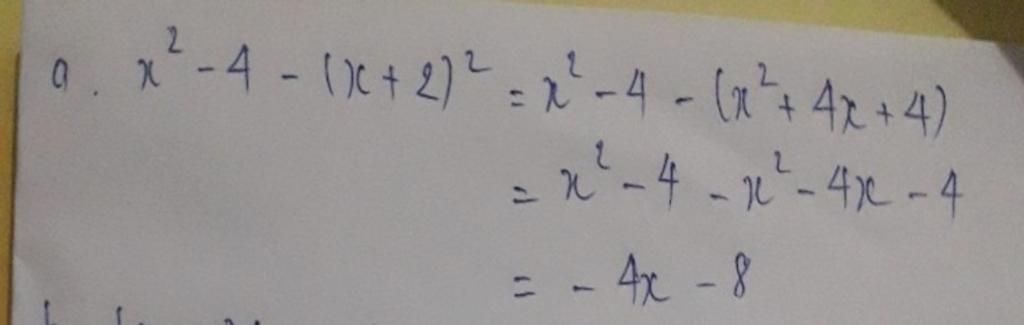 a. x² - 4 - (x + 2)² = x² - 4 - (x² + 4x + 4)
= x² - 4 - x² - 4x - 4
= - 4x - 8